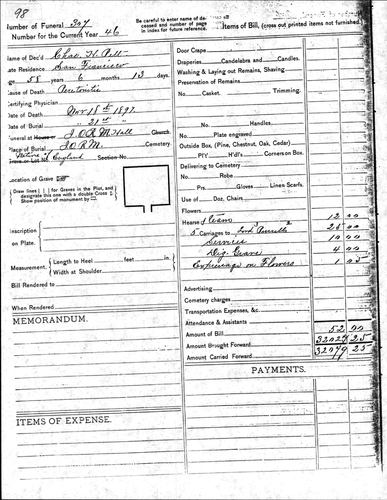 98
Number of Funeral 307
Number for the Current Year 46
Be careful to enter name of deceased and number of page in index for future reference.
Items of Bill, (cross out printed items not furnished.)
Name of Dec'd Chas. H.
Late Residence San Francisco
58 years 6 months 13 days.
Cause of Death
Certifying Physician
Date of Death Nov 18th 1897.
Date of Burial " 21st "
Funeral at House or I.O.R.M. Hall Church
Place of Burial I.O.R.M. Cemetery
Native of England Section No.
Location of Grave
Draw lines for Graves in the Plot, and designate this one with a double Cross
Show position of monument by
Inscription
on Plate.
Measurement. Length to Heel feet in.
Width at Shoulder
Bill Rendered to
When Rendered
MEMORANDUM.
ITEMS OF EXPENSE.
Door Crape
Draperies Candelabra and Candles.
Washing & Laying out Remains, Shaving
Preservation of Remains
No. Casket. Trimming.
No. Handles
No. Plate engraved
Outside Box, (Pine, Chestnut, Oak, Cedar)
PIY H'd'l's Corners on Box.
Delivering to Cemetery
No. Robe
Prs. Gloves Linen Scarfs.
Use of Doz. Chairs
Flowers
Hearse & Team 12 00
5 Carriages to 25 00
Services 10 00
Dig. Grave 4 00
Expressage on Flowers 1 00
Advertising
Cemetery charges
Transportation Expenses, &c.
Attendance & Assistants
Amount of Bill 52 00
Amount Brought Forward 32027 25
Amount Carried Forward 32079 25
PAYMENTS.